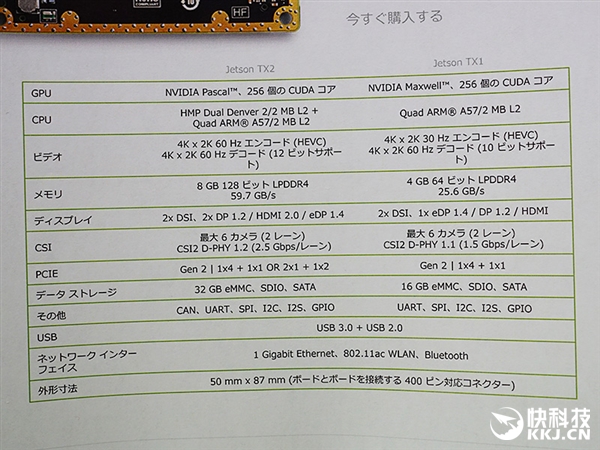 COMPLIANT
HF
今すぐ購入する
Jetson TX2 Jetson TX1
GPU NVIDIA Pascal™、256 個の CUDA コア NVIDIA Maxwell™、256 個の CUDA コア
CPU HMP Dual Denver 2/2 MB L2 + Quad ARM® A57/2 MB L2 Quad ARM® A57/2 MB L2
ビデオ 4K x 2K 60 Hz エンコード (HEVC) 4K x 2K 30 Hz エンコード (HEVC)
4K x 2K 60 Hz デコード (12 ビットサポート) 4K x 2K 60 Hz デコード (10 ビットサポート)
メモリ 8 GB 128 ビット LPDDR4 4 GB 64 ビット LPDDR4
59.7 GB/s 25.6 GB/s
ディスプレイ 2x DSI、2x DP 1.2 / HDMI 2.0 / eDP 1.4 2x DSI、1x eDP 1.4 / DP 1.2 / HDMI
CSI 最大 6 カメラ (2 レーン) 最大 6 カメラ (2 レーン)
CSI2 D-PHY 1.2 (2.5 Gbps/レーン) CSI2 D-PHY 1.1 (1.5 Gbps/レーン)
PCIE Gen 2 | 1x4 + 1x1 OR 2x1 + 1x2 Gen 2 | 1x4 + 1x1
データ ストレージ 32 GB eMMC、SDIO、SATA 16 GB eMMC、SDIO、SATA
その他 CAN、UART、SPI、I2C、I2S、GPIO UART、SPI、I2C、I2S、GPIO
USB USB 3.0 + USB 2.0
ネットワーク インターフェイス 1 Gigabit Ethernet、802.11ac WLAN、Bluetooth
外形寸法 50 mm x 87 mm (ボードとボードを接続する 400 ピン対応コネクター)
快科技
KKJ.CN